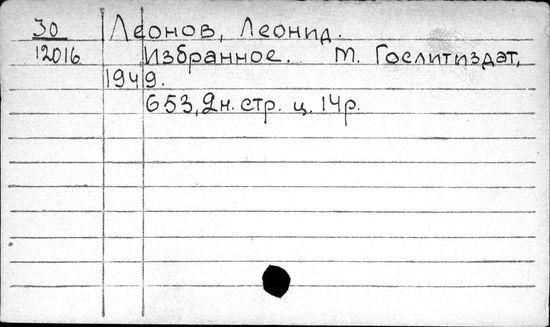 30 Леонов, Леонид.
12016 Избранное. М. Гослитиздат,
1949.
653, 2н. стр. ц. 14р.